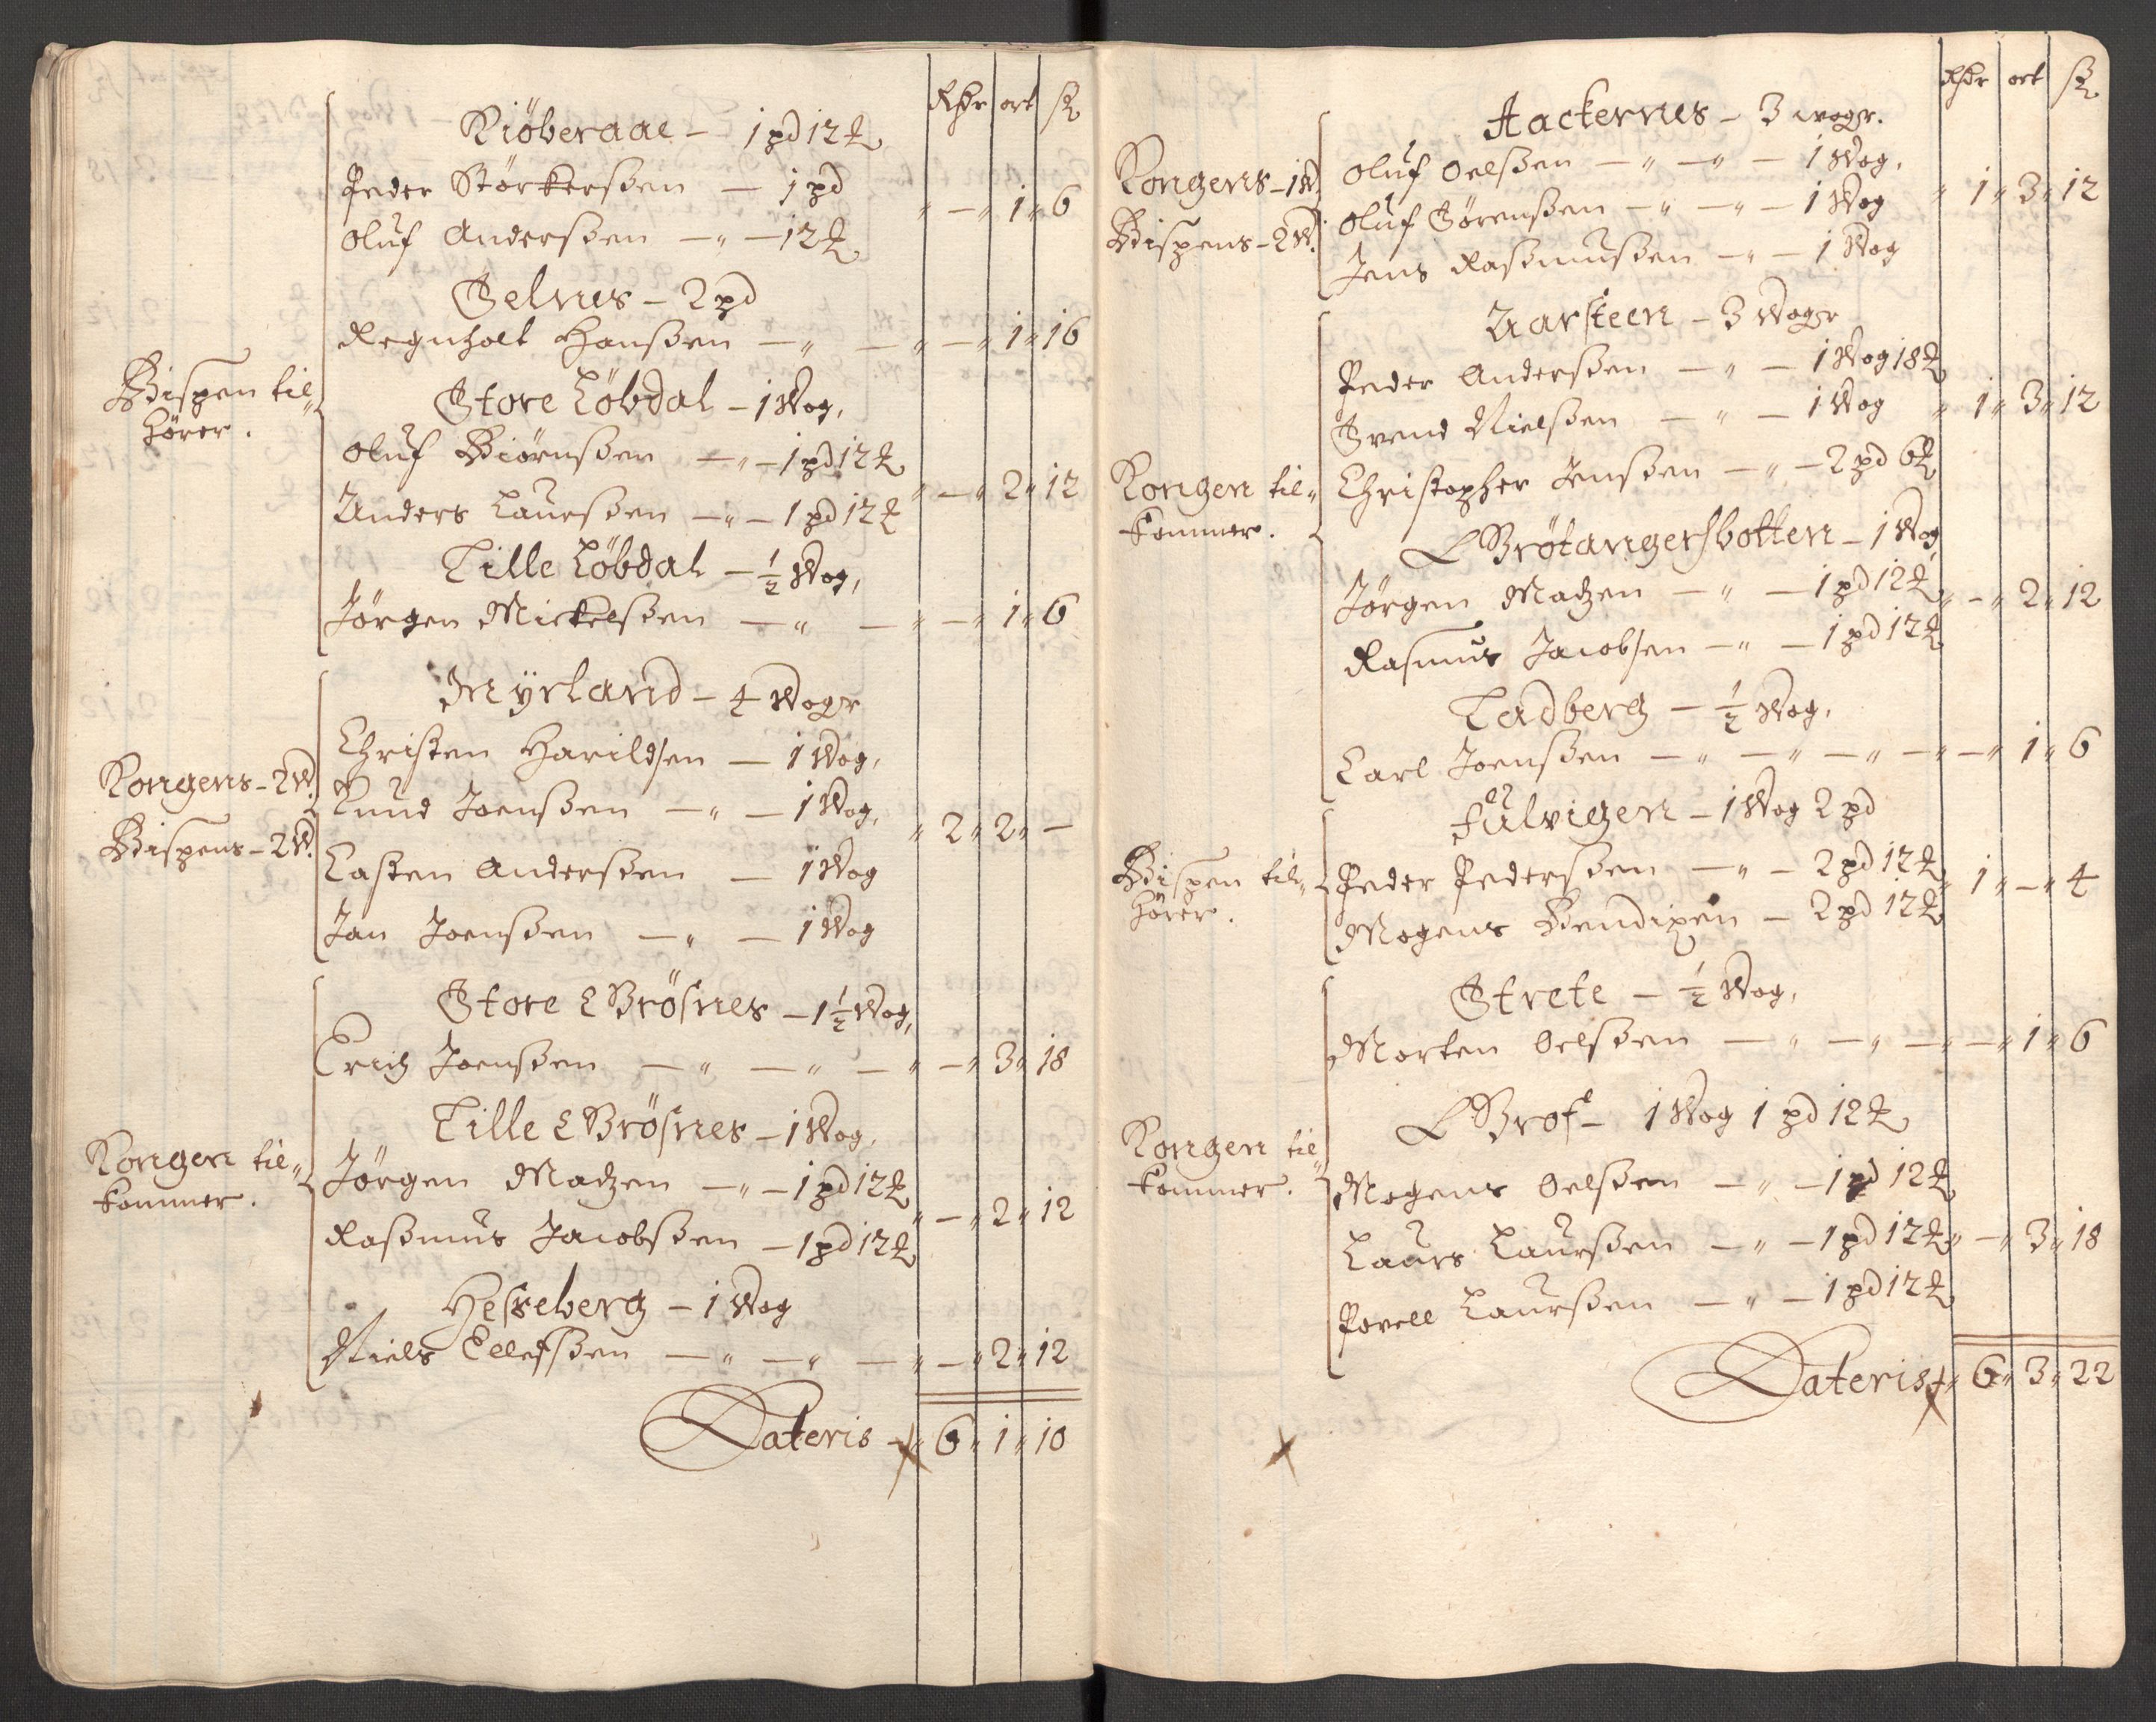 Rhdr ort ß
Kiöberaae – 1 pd 12 ℔
Peder Störkersßen – 1 pd
Oluf Andersßen – „ – 12 ℔ „ – „ 1 „ 6
Selnes – 2 pd
Regnholt Hansßen – „ – „ – „ 1 „ 16
Bispen til„
hörer.
Store Löbdal – 1 Wog,
Oluf Biörnsßen – „ – 1 pd 12 ℔
Anders Laursßen – „ – 1 pd 12 ℔ „ – „ 2 „ 12
Lille Löbdal – ½ Wog,
Jörgen Mickelsßen – „ – „ – „ 1 „ 6
Myrland – 4 Wogr
Christen Harildsen – 1 Wog,
Kongens – 2 W.
Knud Joensßen – „ – 1 Wog,
Bispens – 2 W.
„ 2 „ 2 „ –
Lasten Andersßen – 1 Wog
Jan Joensßen – „ – 1 Wog
Store Brösnes – 1½ Wog,
Erich Joensßen – „ – „ – „ – „ 3 „ 18
Lille Brösnes – 1 Wog,
Kongen til„
kommer.
Jörgen Madzen – „ – 1 pd 12 ℔
Rasßmus Jacobsßen – 1 pd 12 ℔ „ – „ 2 „ 12
Hesseberg – 1 Wog
Niels Ellefsßen – „ – „ – „ – „ 2 „ 12
Lateris – „ 6 „ 1 „ 10
Rhdr ort ß
Aackernes – 3 wogr.
Kongens – 1 W.
Oluf Oelsßen – „ – „ – 1 Wog,
Bispens – 2 W.
Oluf Sörensßen – „ – „ – 1 Wog „ 1 „ 3 „ 12
Jens Rasßmusßen – „ – 1 Wog
Aarsteen – 3 Wogr
Peder Andersßen – „ – 1 Wog 18 ℔
Svend Nielsßen – „ – 1 Wog „ 1 „ 3 „ 12
Kongen til„
kommer.
Christopher Jensßen – „ – 2 pd 6 ℔
Brötangersbotten – 1 Wog,
Jörgen Madzen – „ – 1 pd 12 ℔ „ – „ 2 „ 12
Rasmus Jacobsen – „ – 1 pd 12 ℔
Ladberg – ½ Wog,
Carl Joensßen – „ – „ – „ – „ – „ 1 „ 6
Fulvigen – 1 Wog 2 pd
Bispen til„
hörer.
Peder Pedersßen – „ – 2 pd 12 ℔ „ 1 „ – „ 4
Mogens Bendixen – 2 pd 12 ℔
Strete – ½ Wog,
Morten Oelsßen – „ – „ – „ – „ 1 „ 6
Brof – 1 Wog 1 pd 12 ℔
Kongen til„
kommer.
Mogens Oelsßen – „ – 1 pd 12 ℔
Laurs Laursßen – „ – 1 pd 12 ℔ „ – „ 3 „ 18
Povell Laursßen – „ – 1 pd 12 ℔
Lateris „ 6 „ 3 „ 22